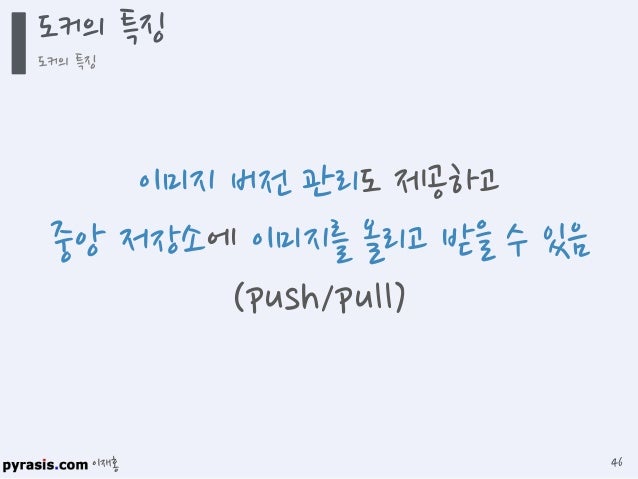 도커의 특징
도커의 특징
이미지 버전 관리도 제공하고
중앙 저장소에 이미지를 올리고 받을 수 있음
(push/pull)
pyrasis.com 이재홍
46